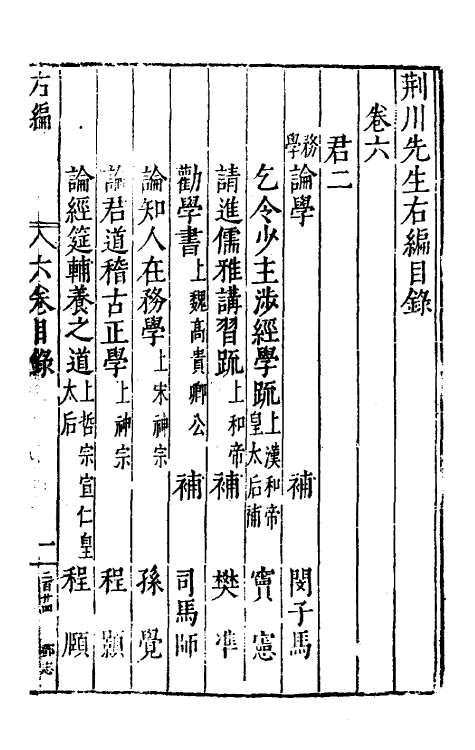 荆川先生右編目錄
卷六
君二
務學 論學 補 閔子馬
乞令少主涉經學䟽 上漢和帝皇太后 補 竇憲
請進儒雅講習䟽 上和帝 補 樊凖
勸學書 上魏高貴鄉公 補 司馬師
論知人在務學 上宋神宗 孫覺
論君道稽古正學 上神宗 程顥
論經筵輔養之道 上哲宗宣仁皇太后 程頥
右編 八六卷目錄 一 二百廿四